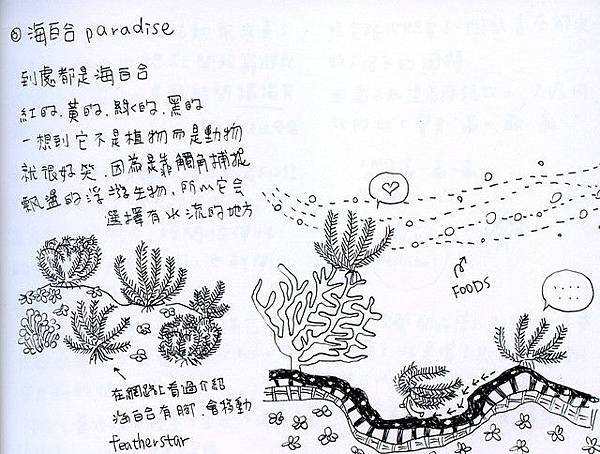 ③ 海百合 paradise
到處都是海百合
紅的.黃的.綠的.黑的
一想到它不是植物而是動物
就很好笑.因為是靠觸角捕捉
飄盪的浮游生物,所以它會
選擇有水流的地方
FOODS
在網路上看過介紹
海百合有腳.會移動
featherstar